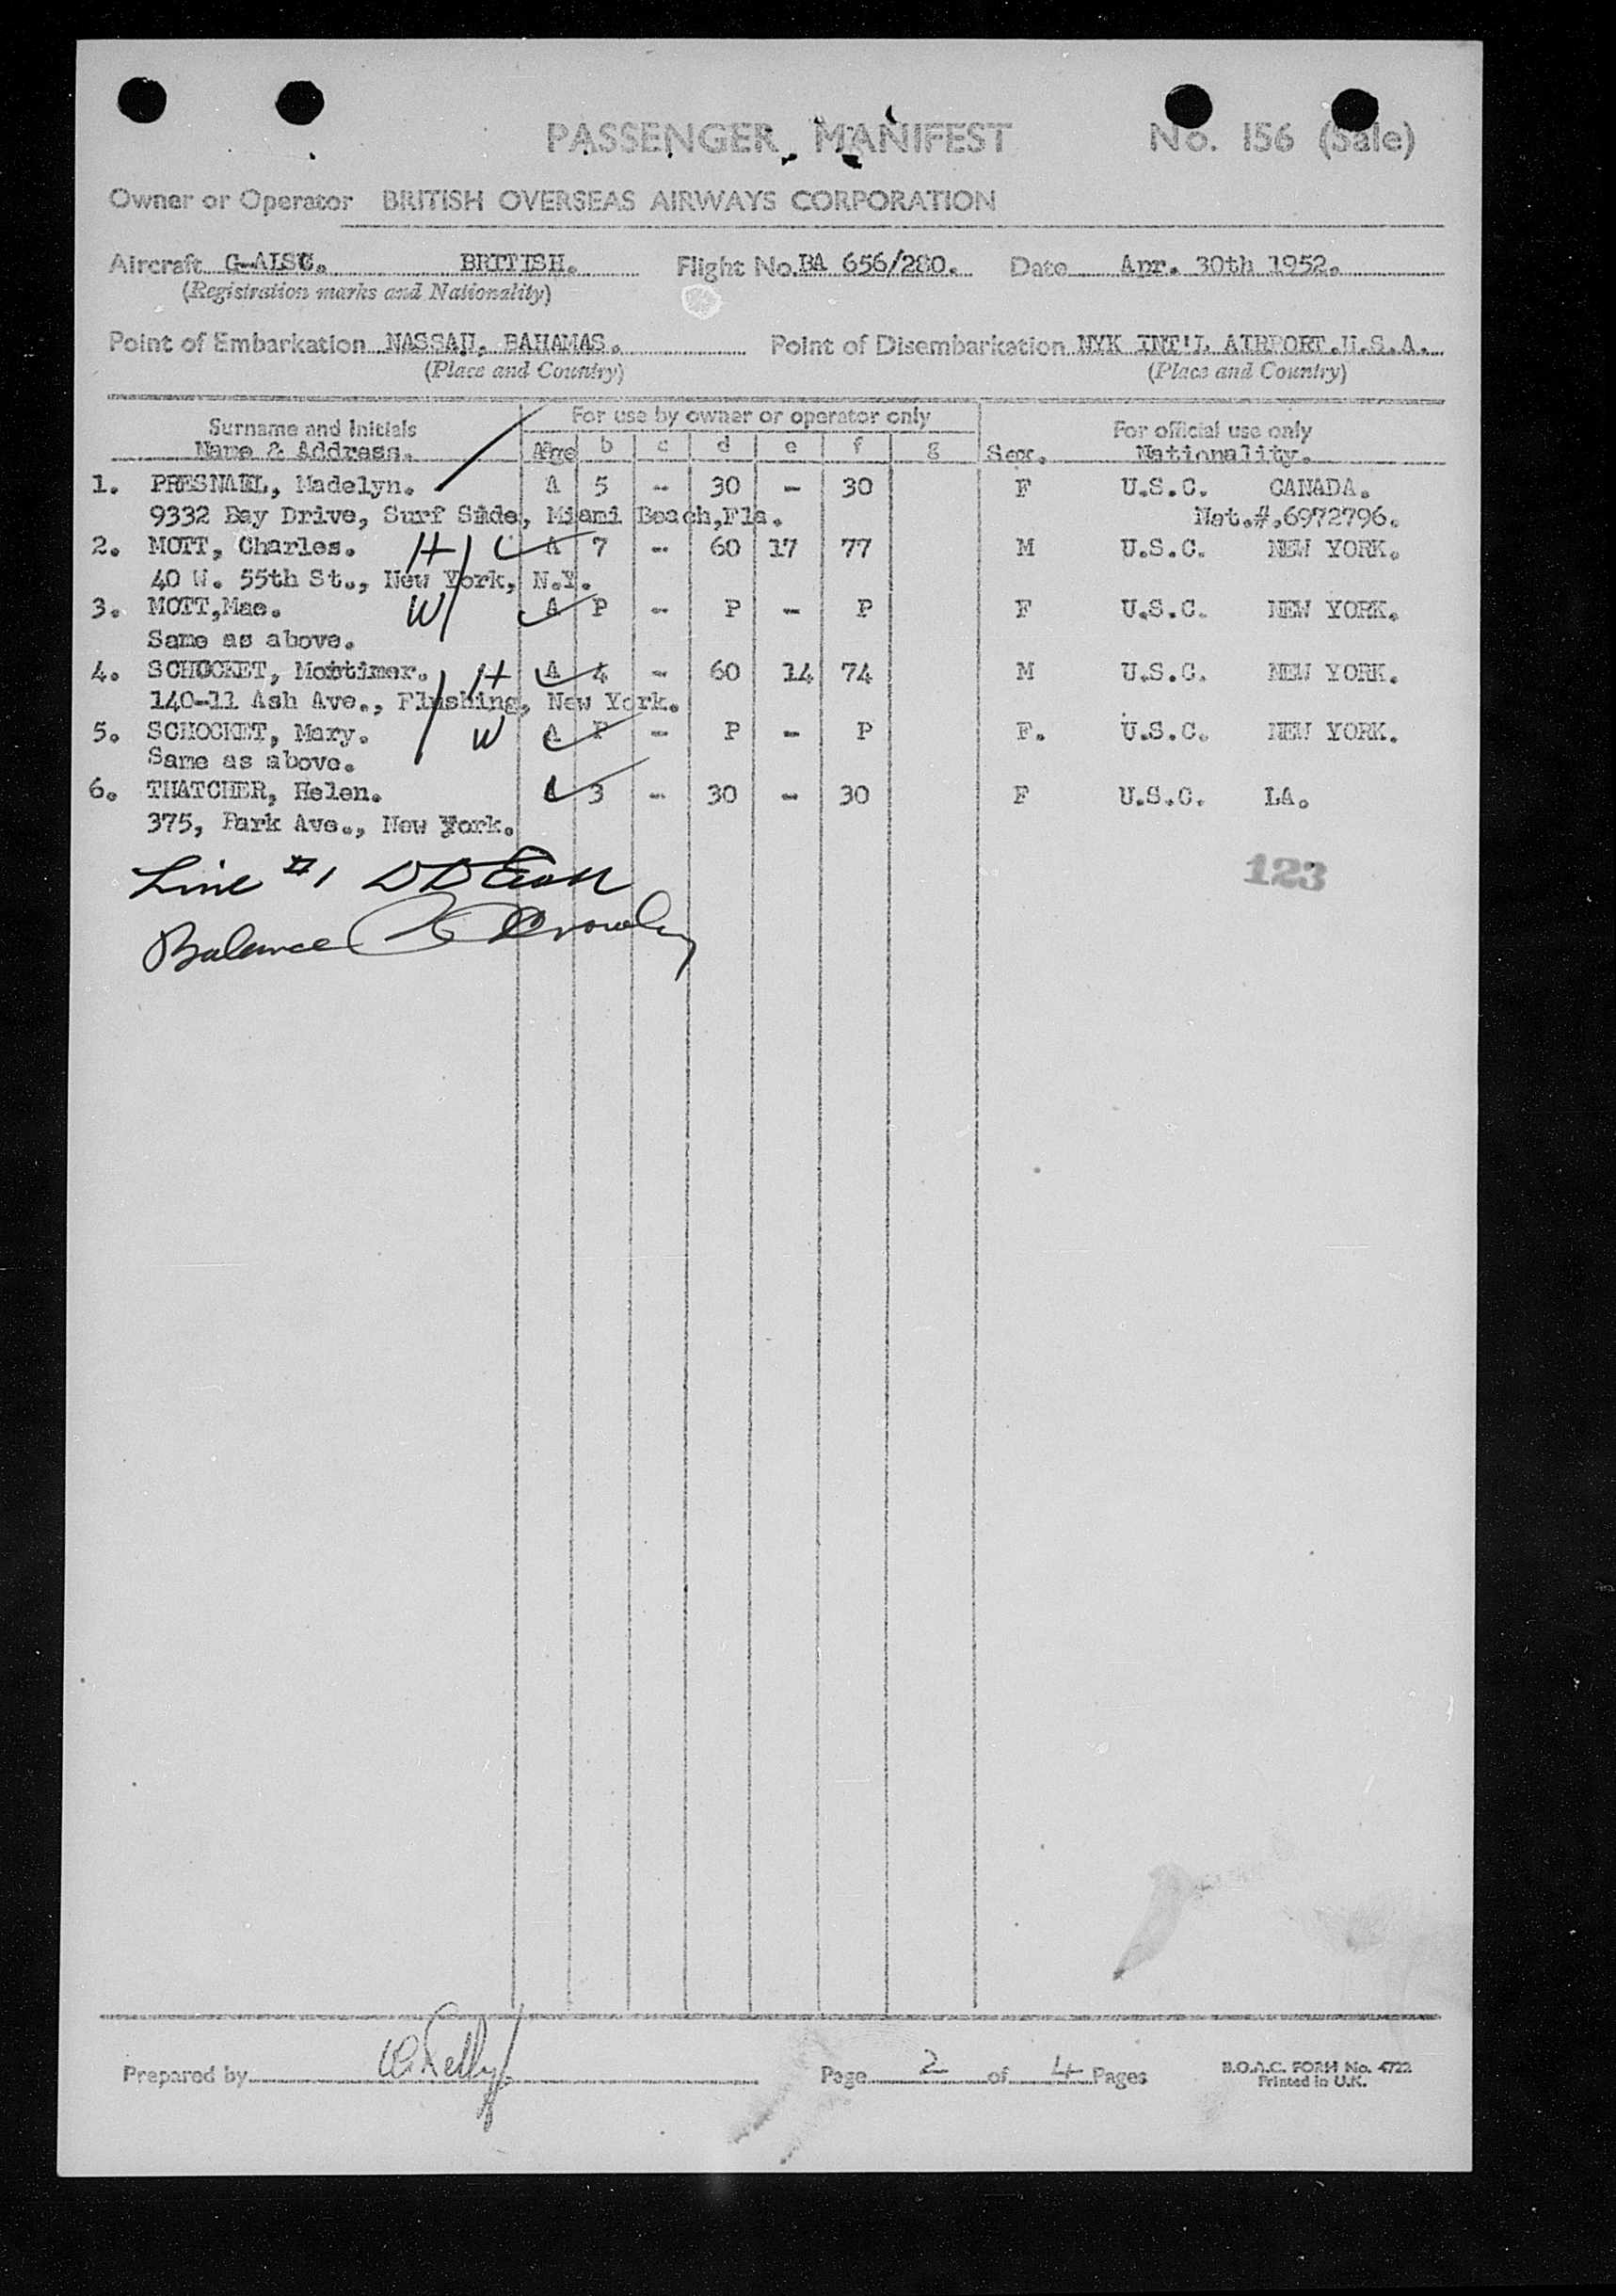 PASSENGER MANIFEST No. 156 (Sale)
Owner or Operator BRITISH OVERSEAS AIRWAYS CORPORATION
Aircraft G-ALSC. BRITISH. Flight No. BA 656/280. Date Apr. 30th 1952.
(Registration marks and Nationality)
Point of Embarkation NASSAU, BAHAMAS. Point of Disembarkation NYK INT'L AIRPORT.U.S.A.
(Place and Country) (Place and Country)
Surname and Initials For use by owner or operator only For official use only
Name & Address. Age b c d e f g Sex. Nationality.
1. PRESNAIL, Madelyn. A 5 - 30 - 30 F U.S.C. CANADA.
9332 Bay Drive, Surf Side, Miami Beach,Fla. Nat.#.6972796.
2. MOTT, Charles. H A 7 - 60 17 77 M U.S.C. NEW YORK.
40 W. 55th St., New York, N.Y.
3. MOTT,Mae. W A P - P - P F U.S.C. NEW YORK.
Same as above.
4. SCHOCKET, Mortimer. H A 4 - 60 14 74 M U.S.C. NEW YORK.
140-11 Ash Ave., Flushing, New York.
5. SCHOCKET, Mary. W A P - P - P F. U.S.C. NEW YORK.
Same as above.
6. THATCHER, Helen. A 3 - 30 - 30 F U.S.C. LA.
375, Park Ave., New York.
123
Line #1
Balance
Prepared by Page 2 of 4 Pages B.O.A.C. FORM No. 4722
Printed in U.K.